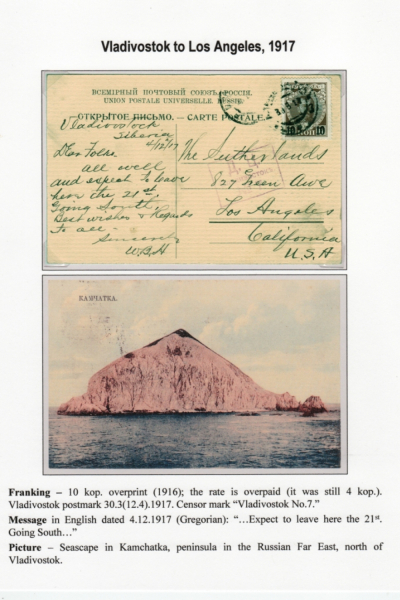 Vladivostok to Los Angeles, 1917
ВСЕМІРНЫЙ ПОЧТОВЫЙ СОЮЗЪ. РОССІЯ.
UNION POSTALE UNIVERSELLE. RUSSIE.
ОТКРЫТОЕ ПИСЬМО. – CARTE POSTALE.
10 КОП 10
Vladivostock
Siberia
4/12/17
Dear Folks.
all well
and expect to leave
here the 21st.
Going South.
Best wishes & Regards
to all –
Sincerely
W.B.H
The Sutherlands
827 Green Ave
Los Angeles
California
U.S.A
КАМЧАТКА.
Franking – 10 kop. overprint (1916); the rate is overpaid (it was still 4 kop.).
Vladivostok postmark 30.3(12.4).1917. Censor mark “Vladivostok No.7.”
Message in English dated 4.12.1917 (Gregorian): “…Expect to leave here the 21st.
Going South…”
Picture – Seascape in Kamchatka, peninsula in the Russian Far East, north of
Vladivostok.